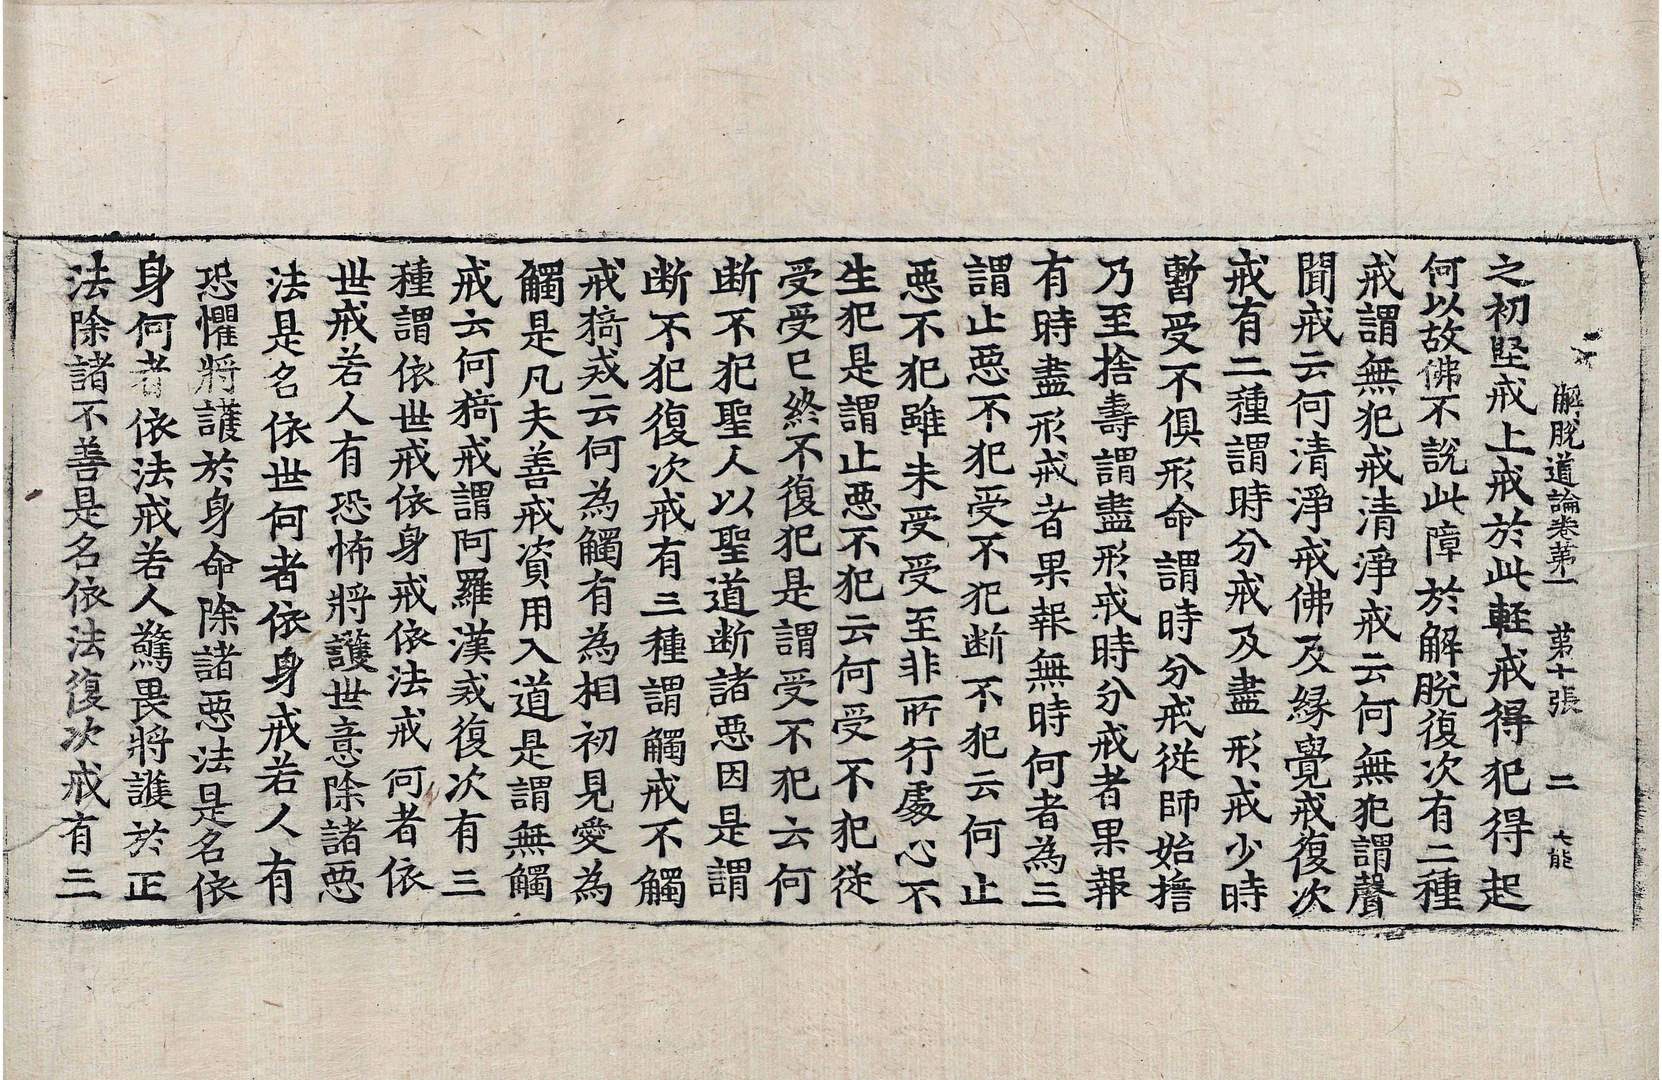 解脫道論卷第一　第十張　二　大能
之初堅戒上戒於此輕戒得犯得起
何以故佛不說此障於解脫復次有二種
戒謂無犯戒清淨戒云何無犯謂聲
聞戒云何清淨戒佛及緣覺戒復次
戒有二種謂時分戒及盡形戒少時
暫受不俱形命謂時分戒從師始擔
乃至捨壽謂盡形戒時分戒者果報
有時盡形戒者果報無時何者為三
謂止惡不犯受不犯斷不犯云何止
惡不犯雖未受受至非所行處心不
生犯是謂止惡不犯云何受不犯從
受受已終不復犯是謂受不犯云何
断不犯聖人以聖道断諸惡因是謂
断不犯復次戒有三種謂觸戒不觸
戒猗戒云何為觸有為相初見愛為
觸是凡夫善戒資用入道是謂無觸
戒云何猗戒謂阿羅漢戒復次有三
種謂依世戒依身戒依法戒何者依
世戒若人有恐怖將護世意除諸惡
法是名依世何者依身戒若人有
恐懼將護於身命除諸惡法是名依
身何者依法戒若人驚畏將護於正
法除諸不善是名依法復次戒有三